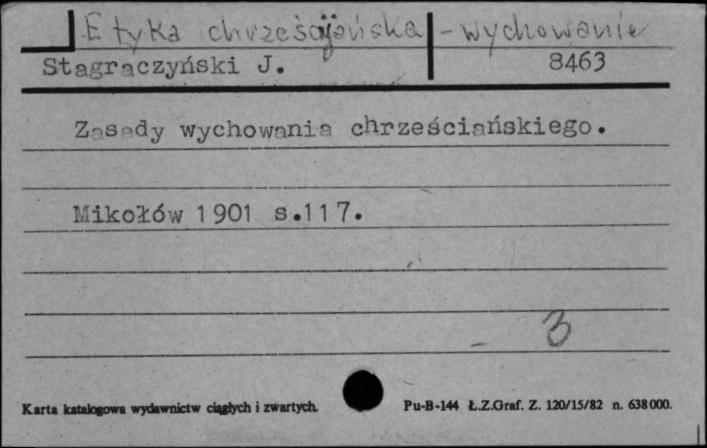 Etyka chrześcijańska - wychowanie
Stagraczyński J. 8463
Zasady wychowania chrześciańskiego.
Mikołów 1901 s.117.
3
Karta katalogowa wydawnictw ciągłych i zwartych. Pu-B-144 Ł.Z.Graf. Z. 120/15/82 n. 638000.